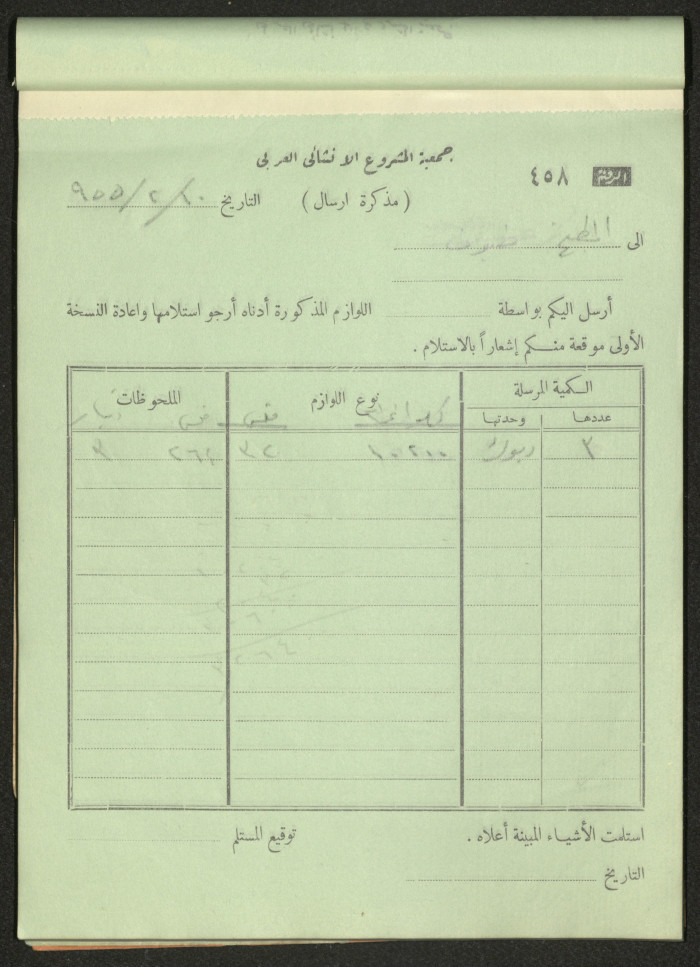 جمعية المشروع الانشائى العربى
الرقم ٤٥٨
( مذكرة ارسال ) التاريخ ١٠/٢/٩٥٥
الى المطبخ
أرسل اليكم بواسطة اللوازم المذكورة أدناه أرجو استلامها واعادة النسخة
الأولى موقعة منكم إشعاراً بالاستلام .
الكمية المرسلة نوع اللوازم الملحوظات
عددها وحدتها فلس دينار
٣ ديوك ١٠٢٠٠ ٣٢ ٢٦٤ ٣
استلمت الأشياء المبينة أعلاه . توقيع المستلم
التاريخ